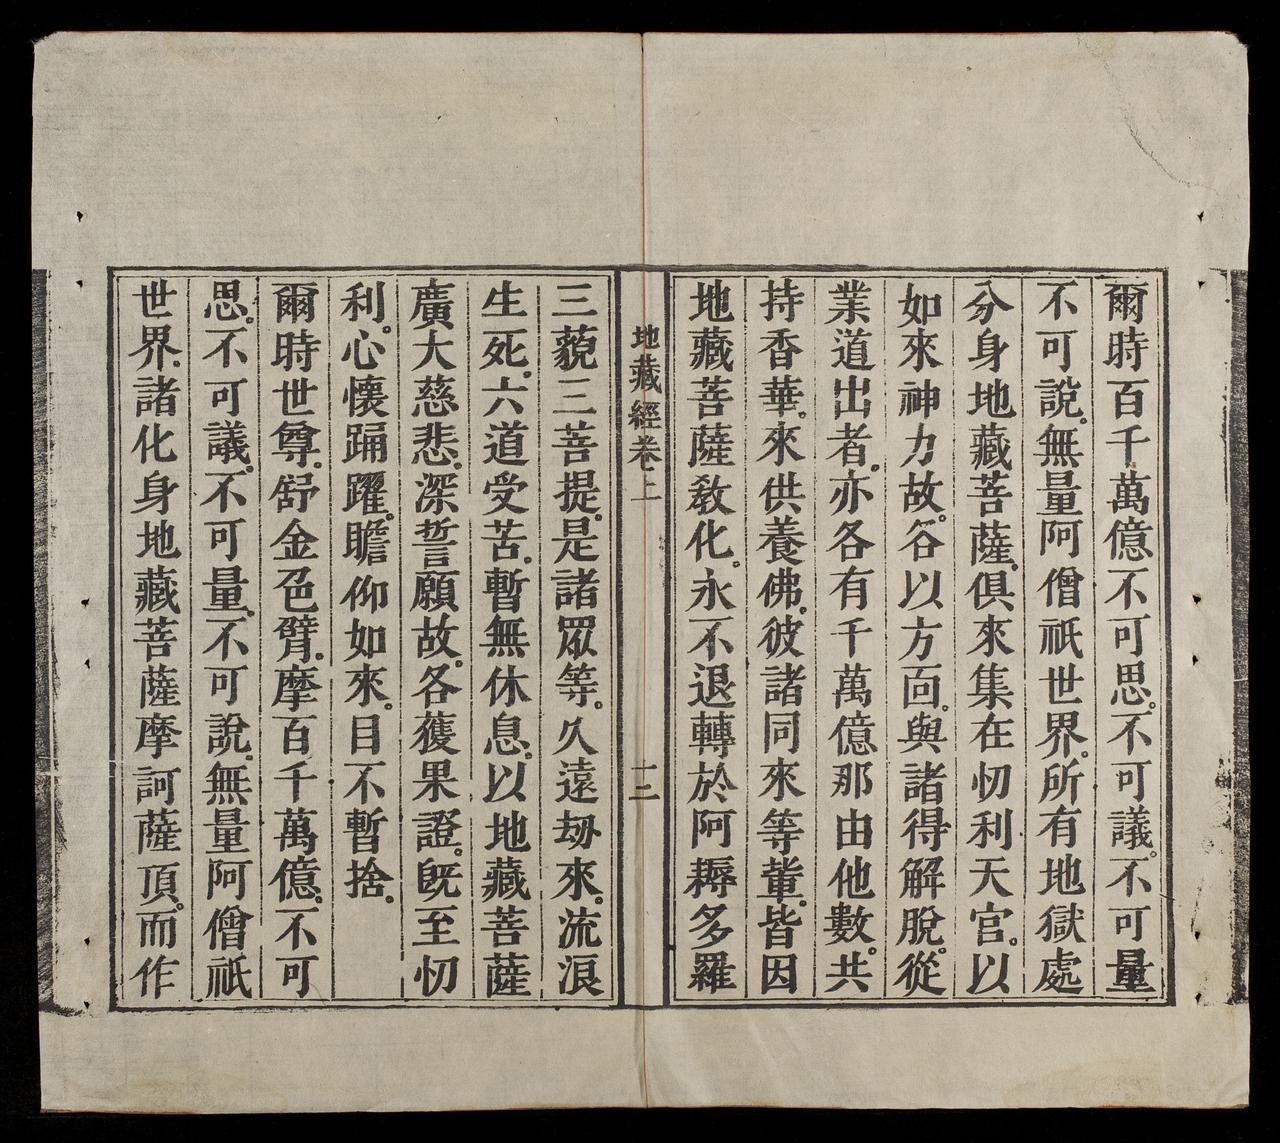 爾時百千萬億不可思。不可議。不可量
不可說。無量阿僧祇世界。所有地獄處
分身地藏菩薩。俱來集在忉利天宮。以
如來神力故。各以方面。與諸得解脫。從
業道出者。亦各有千萬億那由他數。共
持香華。來供養佛。彼諸同來等輩。皆因
地藏菩薩教化。永不退轉於阿耨多羅
地藏經卷上
十三
三藐三菩提。是諸眾等。久遠劫來。流浪
生死。六道受苦。暫無休息。以地藏菩薩
廣大慈悲。深誓願故。各獲果證。既至忉
利。心懷踊躍。瞻仰如來。目不暫捨。
爾時世尊。舒金色臂。摩百千萬億。不可
思。不可議。不可量。不可說。無量阿僧祇
世界。諸化身地藏菩薩摩訶薩頂。而作